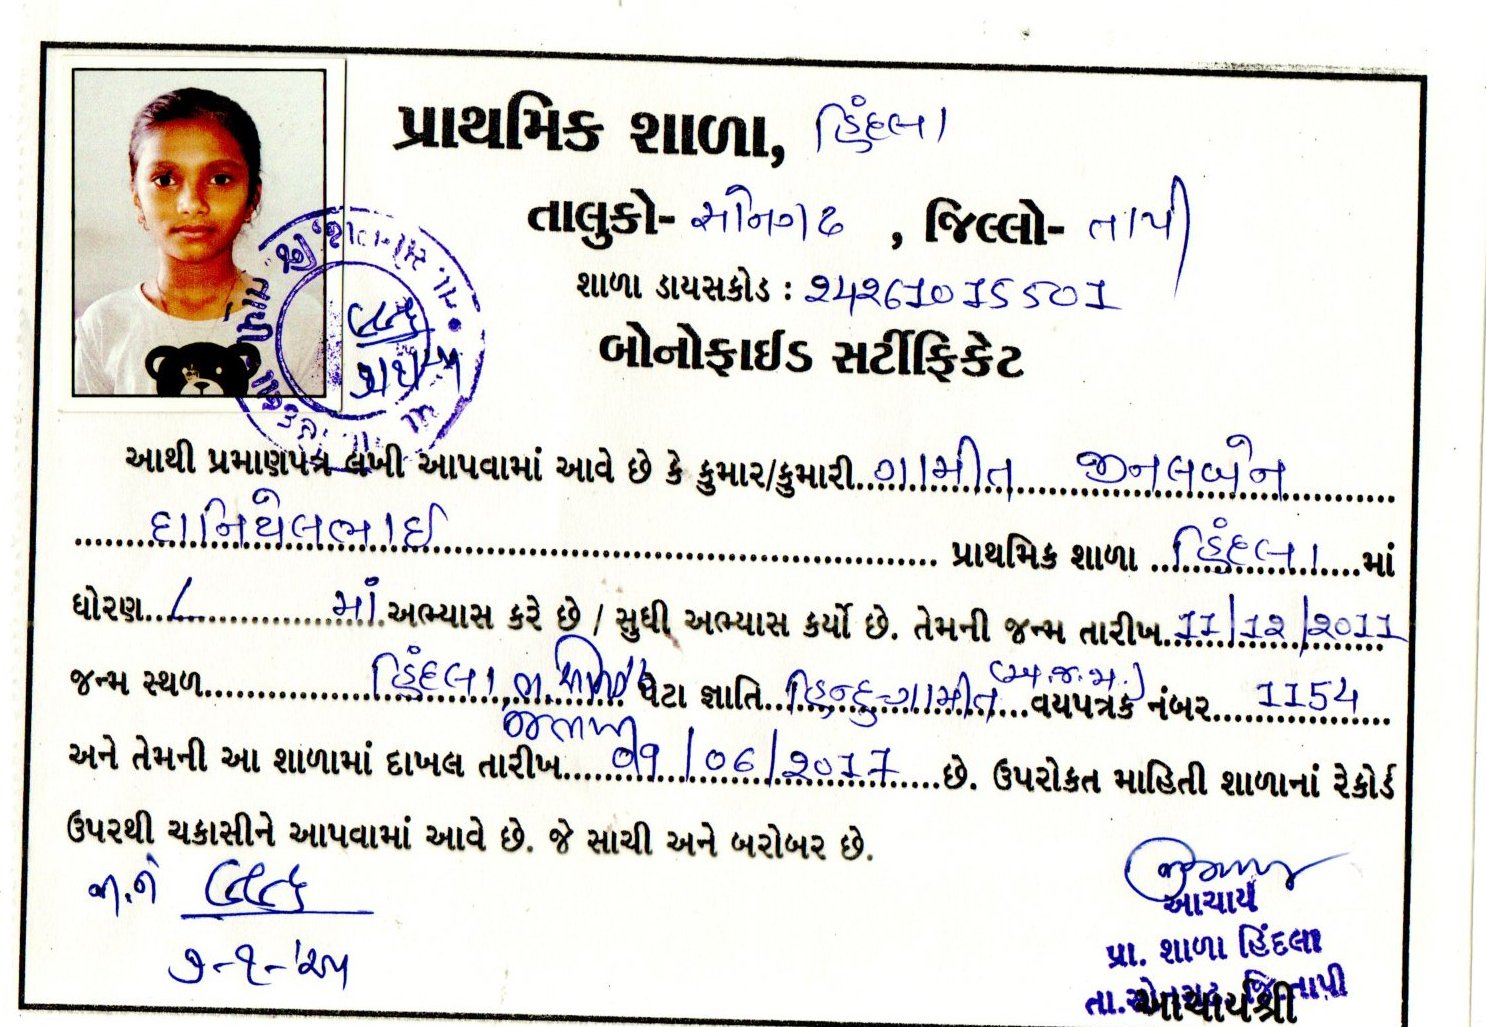 પ્રાથમિક શાળા, હિંદલા
તાલુકો- સોનગઢ , જિલ્લો- તાપી
શાળા ડાયસકોડ : 24261015501
બોનોફાઈડ સર્ટીફિકેટ
આથી પ્રમાણપત્ર લખી આપવામાં આવે છે કે કુમાર/કુમારી ગામીત જીનલબેન
દાનિયેલભાઈ પ્રાથમિક શાળા હિંદલા માં
ધોરણ ૮ માં અભ્યાસ કરે છે / સુધી અભ્યાસ કર્યો છે. તેમની જન્મ તારીખ 11/12/2011
જન્મ સ્થળ હિંદલા પેટા જ્ઞાતિ હિન્દુ-ગામીત (અ.જ.જા.) વયપત્રક નંબર 1154
અને તેમની આ શાળામાં દાખલ તારીખ 09/06/2017 છે. ઉપરોકત માહિતી શાળાનાં રેકોર્ડ
ઉપરથી ચકાસીને આપવામાં આવે છે. જે સાચી અને બરોબર છે.
જા.નં
આચાર્ય
પ્રા. શાળા હિંદલા
તા. સોનગઢ, જિ.તાપી
આચાર્યશ્રી